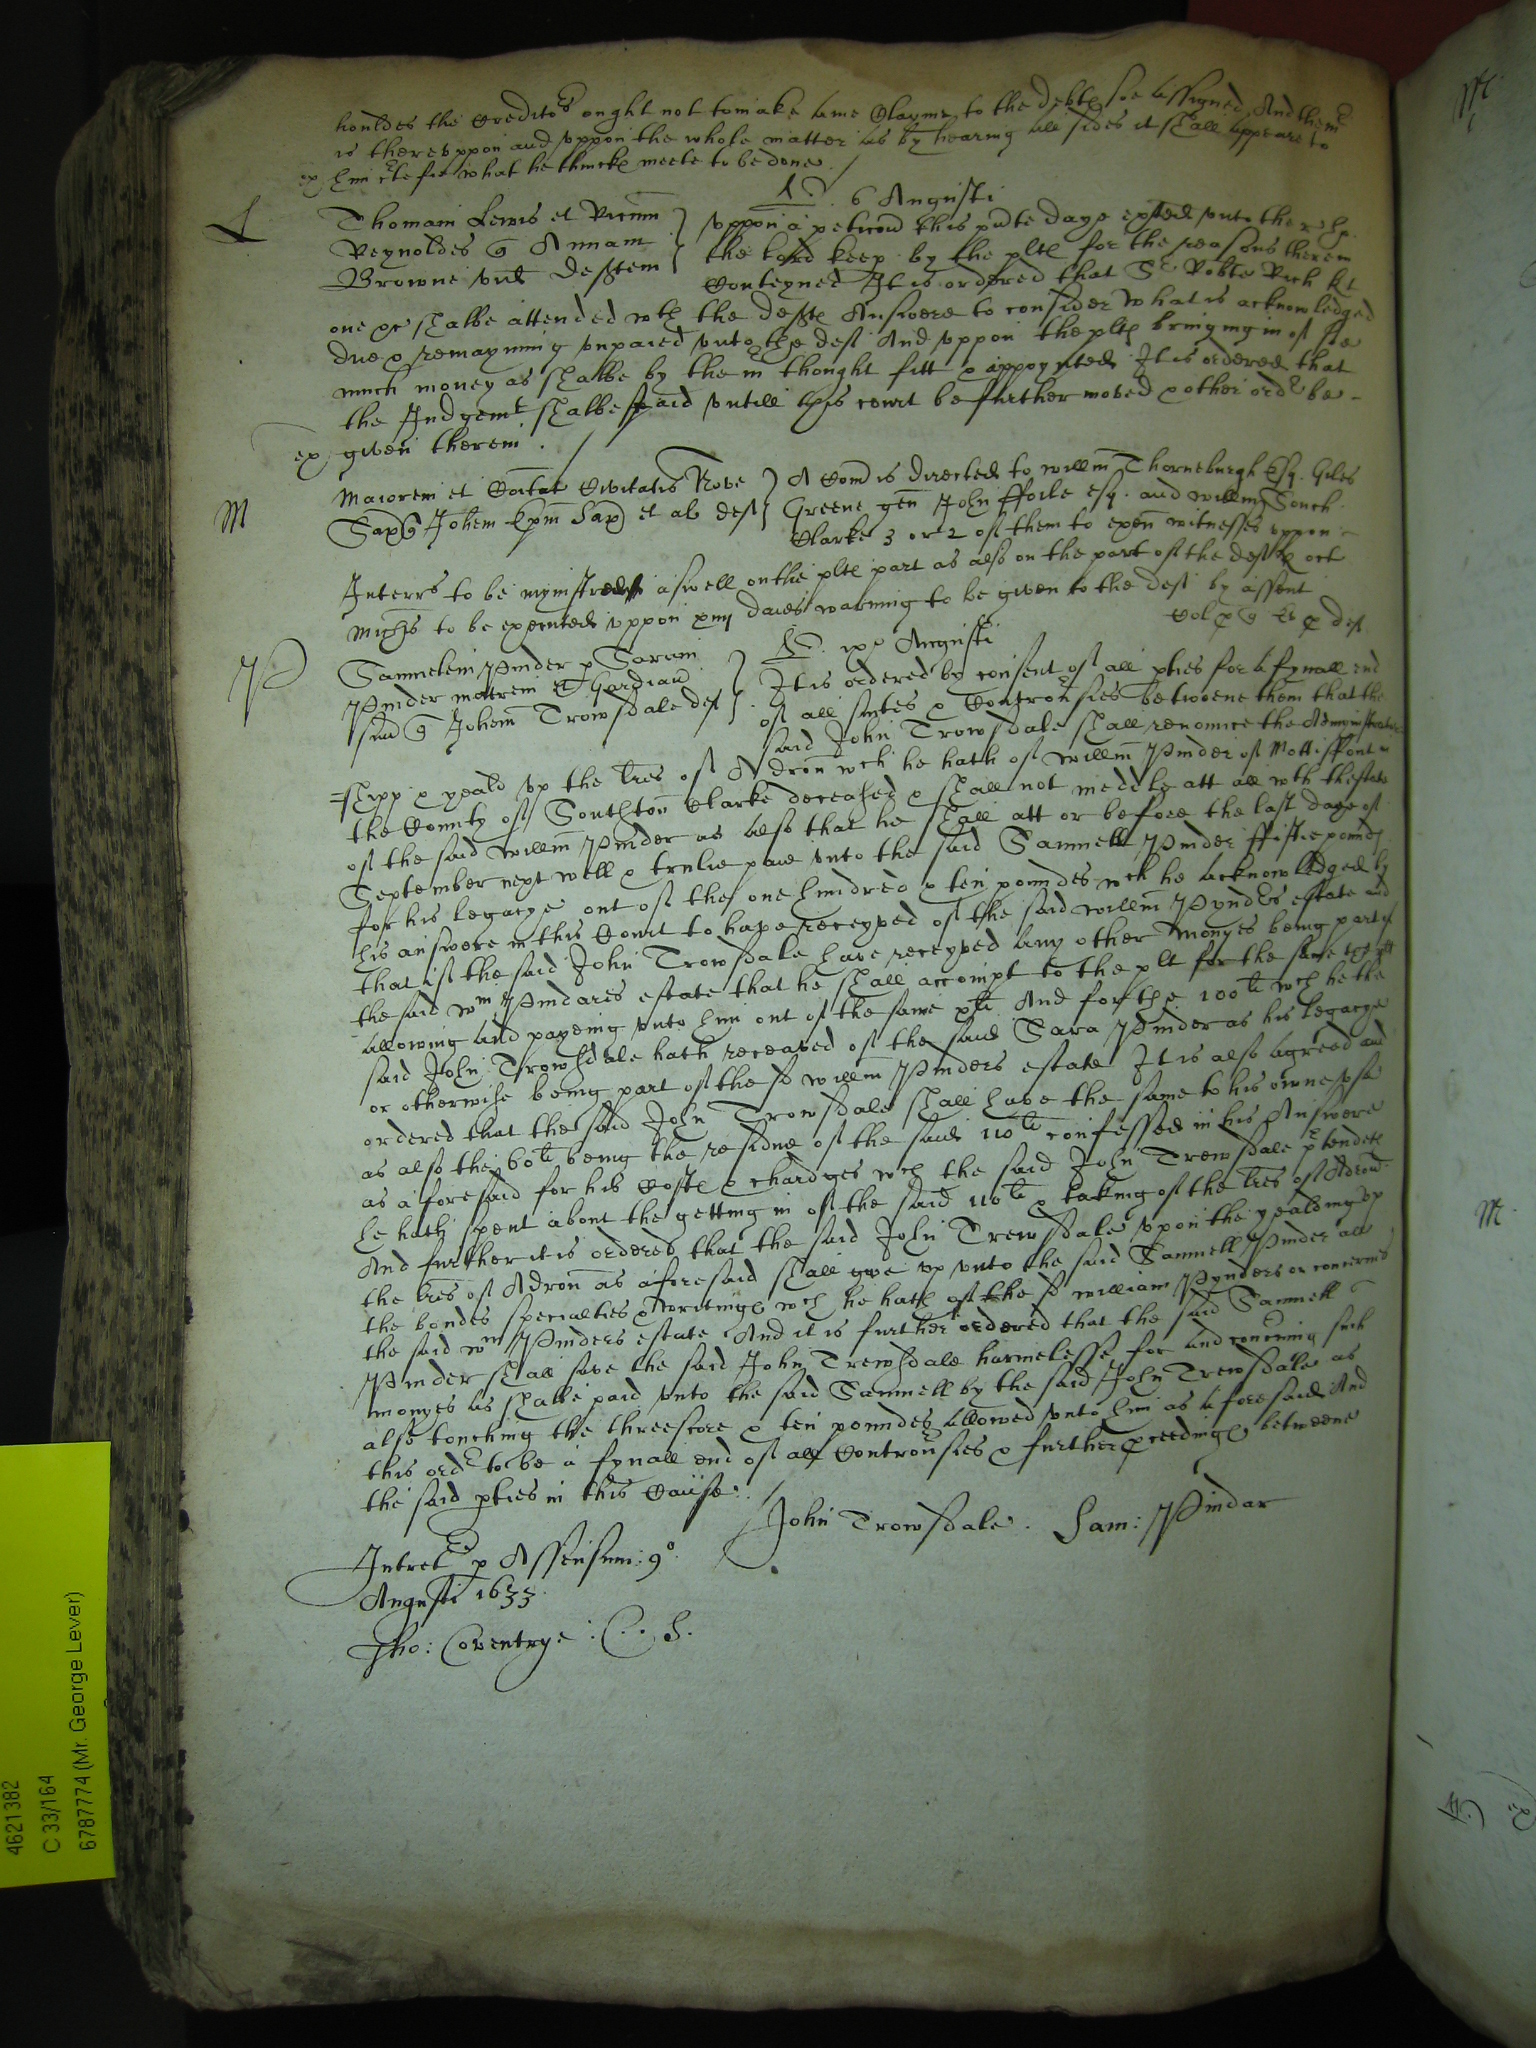 houldes the Creditors ought not to make anie Clayme to the debtes soe assigned And the mr
is thereuppon and uppon the whole matter as by hearing all sides it shall appeare to
ex him cte for what he thincke meete to be done
L 6 Augusti
Thomam Lewis et Ricum } Uppon a peticon this pnte daye exhted unto the
Reynoldes q Annam } the Lord keep by the plts for the reasons therein
Browne vid deftem } Conteyned It is ordered that Sr Robte Rich kt
one &c shalbe attended wth the defts Answere to consider what is acknowledged
due & remayning unpaied unto the deft And uppon the plts bringing in of soe
much money as shalbe by the mr thought fitt & appoynted It is ordered that
the Judgemt shalbe staid untill this court be further moved & other ordr be
ex given therein
M Maiorem et Coitat Civitatis Nove } A Comd is directed to willm Thorneburgh Esq. Giles
Sar q Johem Epm Sar et al deft } Greene gen John ffoile esq. and willm South
Clarke 3 or 2 of them to exen witnesses uppon
Interrs to be mynistred aswell on the plts part as also on the part of the deft oct
Michis to be executed uppon xiiij daies warning to be given to the deft by assent
P ixo Augusti
Samuelem Pinder & Saram } It is ordered by consent of all pties for a fynall end
Pinder matrem & Gardian } of all suites & Controusies betweene them that the
sua q Johem Trowsdale deft } said John Trowsdale shall renounce the Admynistrator
=shipp & yeald up the lres of Adcon wch he hath of willm Pinder of Mottisfont in
the County of Southton Clarke deceased & shall not meddle att all wth thestate
of the said willm Pinder as also that he shall att or before the last daye of
September next well & trulie paie unto the said Samuell Pinder ffiftie poundes
for his legacye out of the one hundred & ten poundes wch he acknowledged by
his answere in this Court to have receyved of the said willm Pynders estate and
that if the said John Trowsdale have receyved any other monyes being part of
the said wm Pindares estate that he shall accompt to the plt for the same
allowing and payeing unto him out of the same And for the 100li wch he the
said John Trowsdale hath receaved of the said Sara Pinder as his legacye
or otherwise being part of the sd willm Pinders estate It is also agreed and
ordered that the said John Trowsdale shall have the same to his owne use
as also the 60li being the residue of the said 110li confessed in his Answere
as aforesaid for his costs & chardges wch the said John Trewsdale ptendeth
he hath spent about the getting in of the said 110li & taking of the lres of Adcon
And further it is ordered that the said John Trewsdale upon the yealding up
the lres of Adcon as aforesaid shall give up unto the said Samuell Pinder all
the bondes specialties & writings wch he hath of the sd william Pynders or concerning
the said wm Pinders estate And it is further ordered that the said Samuell
Pinder shall save the said John Trewsdale harmelesse for and concerning such
monyes as shalbe paid unto the said Samuell by the said John Trewsdale as
also touching the threescore & ten poundes allowed unto him as aforesaid And
this ordr to be a fynall end of all Controusies & further pceedings betweene
the said pties in this Cause.
John Trowsdale. Sam: Pindar
Intret p Assensum: 9o
Augusti 1633
Tho: Coventrye: C. S.
4621382
C 33/164
6787774 (Mr. George Lever)
M